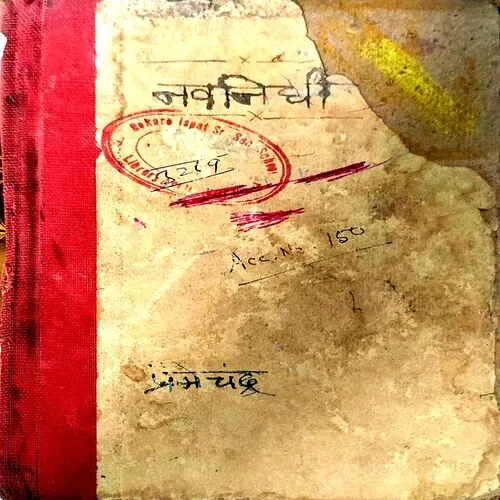 नवनिधी
Bokaro Ispat Sr. Sec. School
Library
Acc. No. 150
प्रेमचंद्र